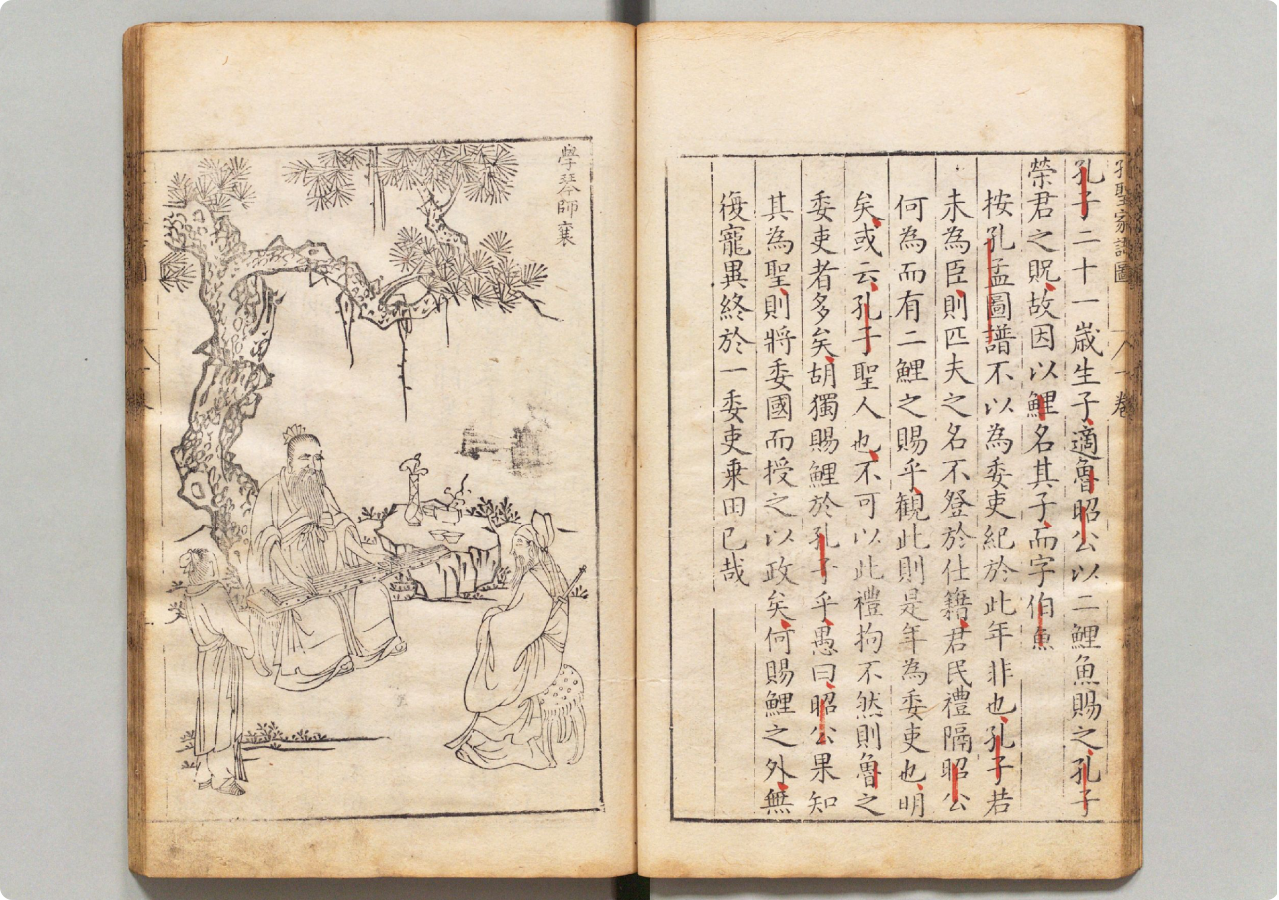 孔聖家譜圖 八一卷
孔子二十一歲生子適魯昭公以二鯉魚賜之孔子
榮君之貺故因以鯉名其子而字伯魚
按孔孟圖譜不以為委吏紀於此年非也孔子若
未為臣則匹夫之名不登於仕籍君民禮隔昭公
何為而有二鯉之賜乎観此則是年為委吏也明
矣或云孔子聖人也不可以此禮拘不然則魯之
委吏者多矣胡獨賜鯉於孔子乎愚曰昭公果知
其為聖則將委國而授之以政矣何賜鯉之外無
復寵異終於一委吏乗田已哉
學琴師襄